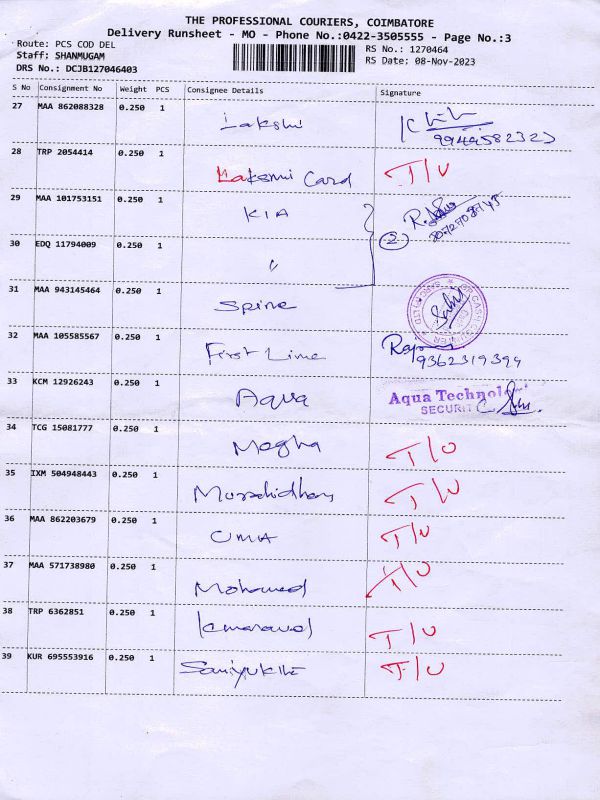 THE PROFESSIONAL COURIERS, COIMBATORE
Delivery Runsheet - MO - Phone No.:0422-3505555 - Page No.:3
Route: PCS COD DEL
RS No.: 1270464
Staff: SHANMUGAM
RS Date: 08-Nov-2023
DRS No.: DCJB127046403
S No Consignment No Weight PCS Consignee Details Signature
27 MAA 862088328 0.250 1 Lakshi
28 TRP 2054414 0.250 1 Lakshmi Card T/U
29 MAA 101753151 0.250 1 KIA
30 EDQ 11794009 0.250 1 " 2
31 MAA 943145464 0.250 1 Spine
32 MAA 105585567 0.250 1 First Lime 9362319394
33 KCM 12926243 0.250 1 Aqua Aqua Technolo
SECURIT
34 TCG 15081777 0.250 1 Megha T/U
35 IXM 504948443 0.250 1 T/U
36 MAA 862203679 0.250 1 UMA T/U
37 MAA 571738980 0.250 1 Mohamed T/U
38 TRP 6362851 0.250 1 T/U
39 KUR 695553916 0.250 1 T/U